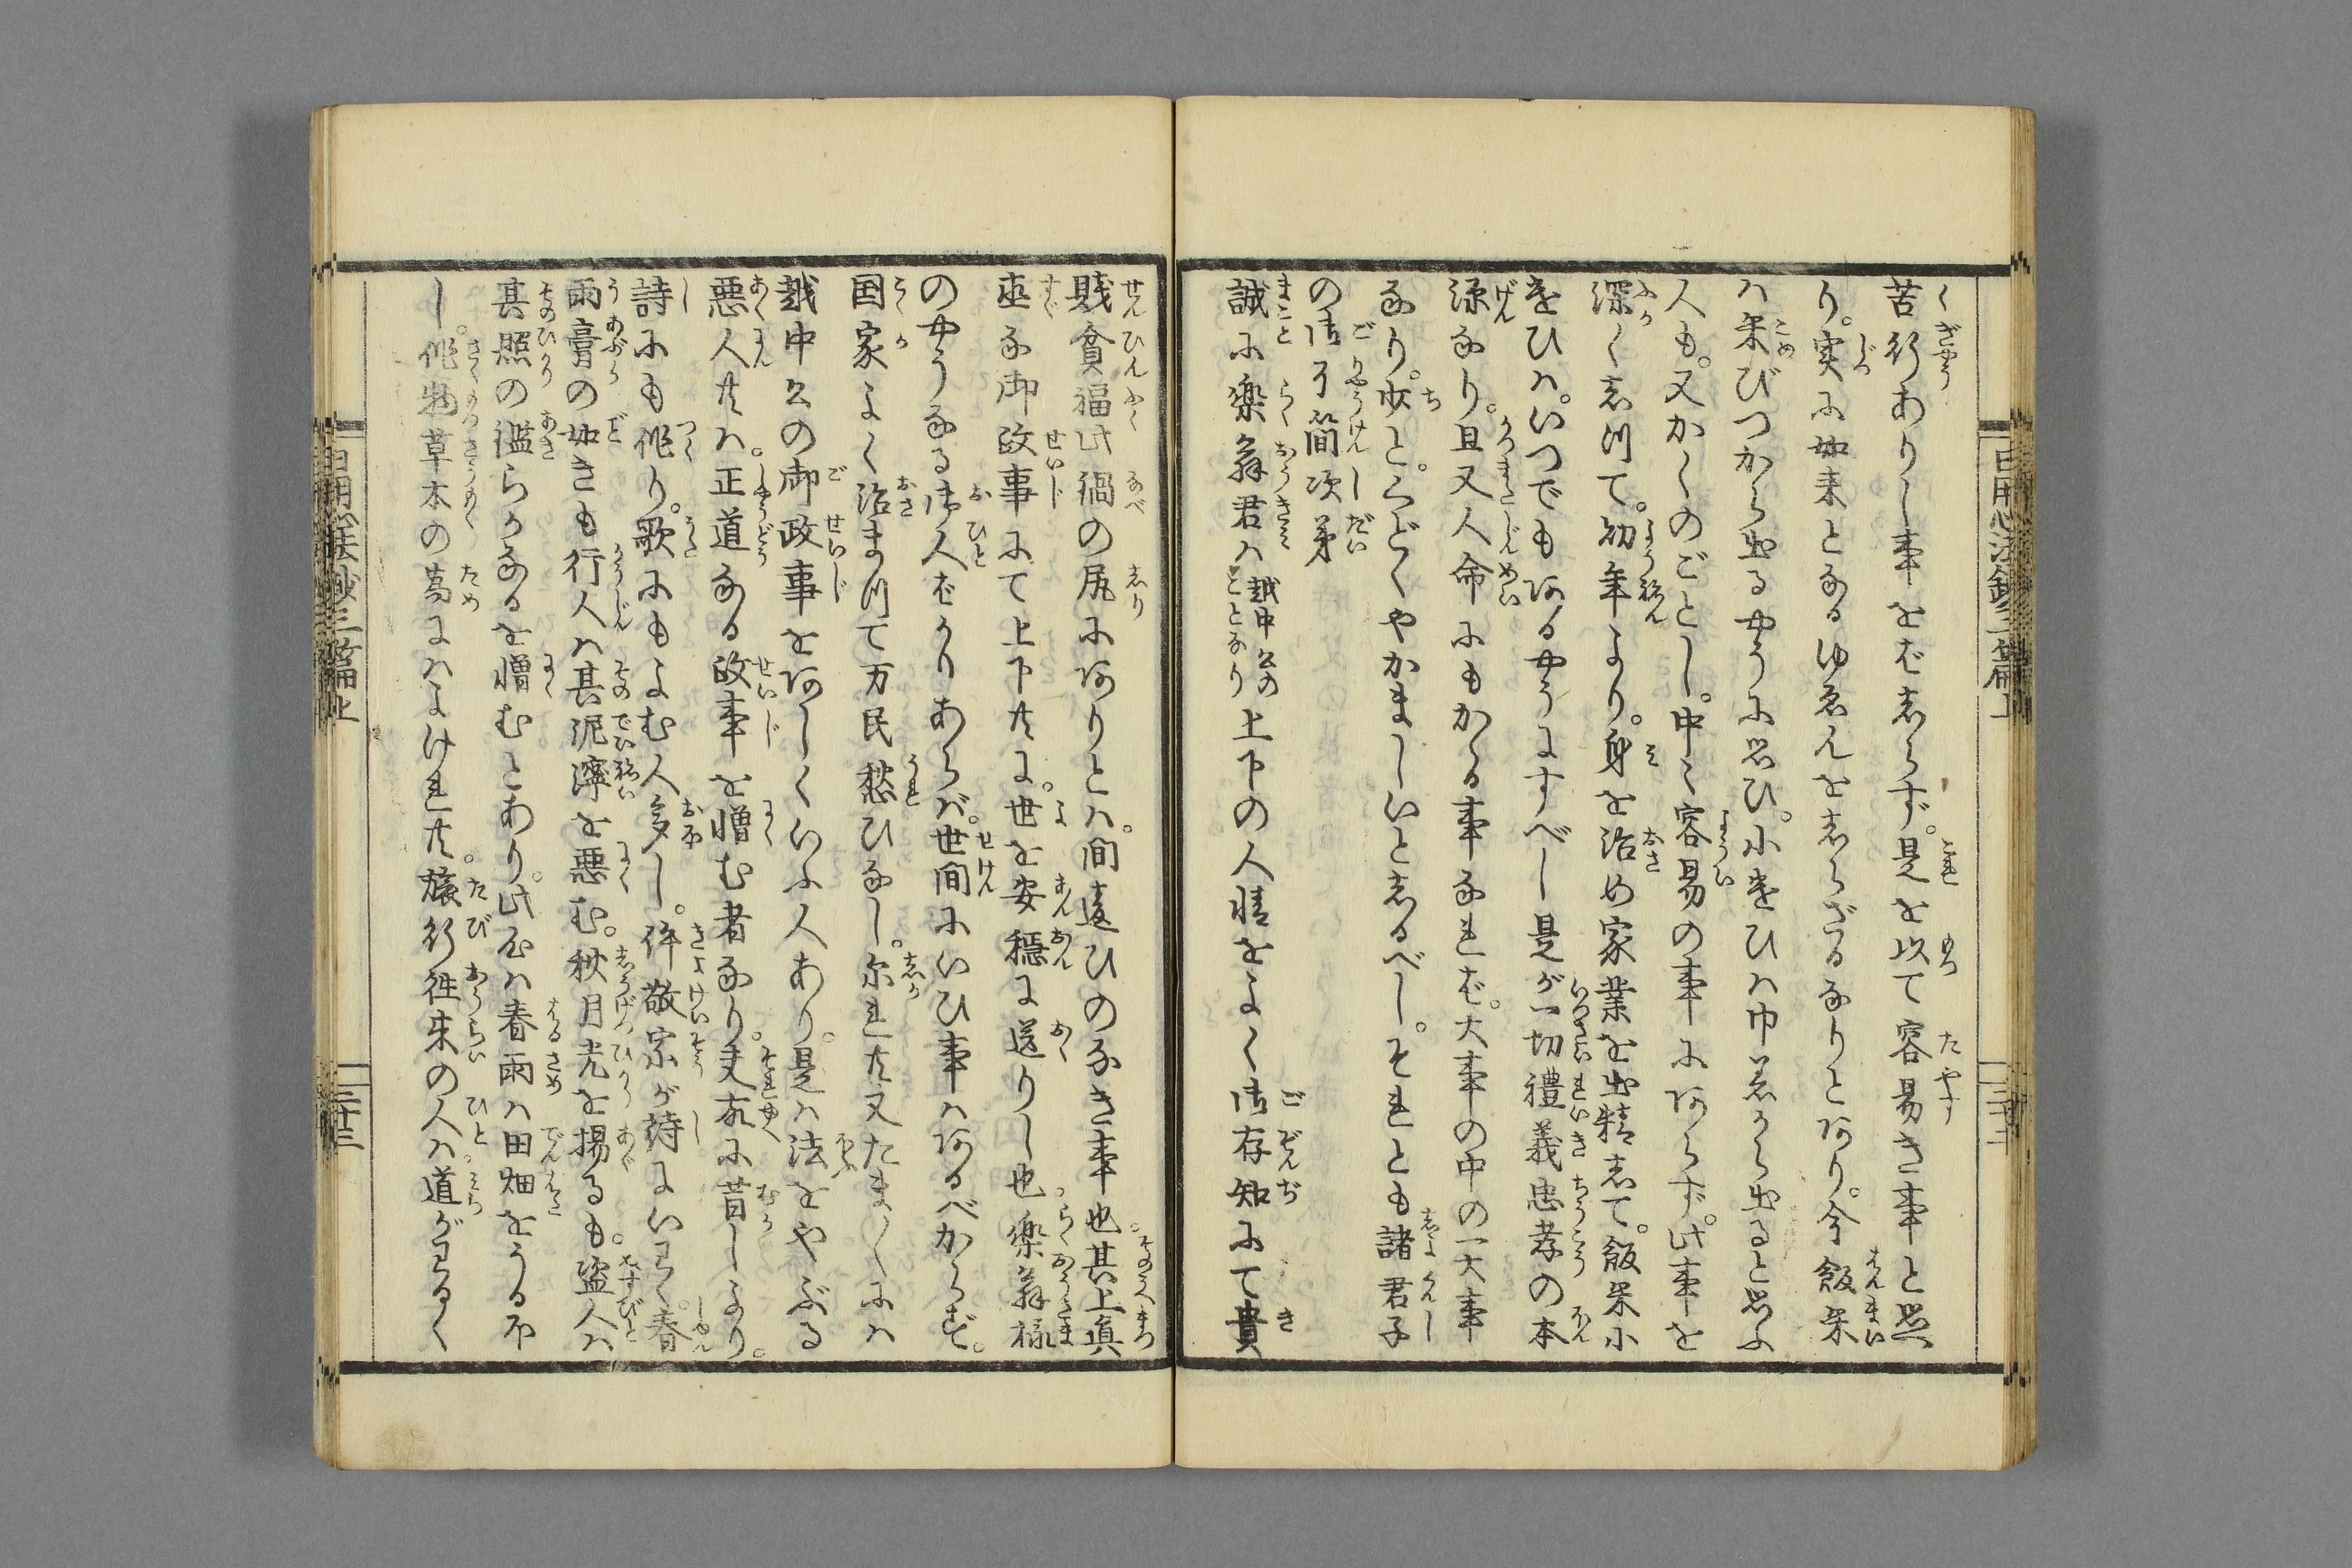 苦行ありし事をバ志らず。是を以て容易き事と思へ
り。実に如来となるゆゑんを志らざるなりとあり。今飯米
ハ米びつから出るやうに思ひ。小遣ひハ巾着から出ると思ふ
人も。又かくのごとし。中々容易の事にあらず。此事を
深く志つて。幼年より。身を治め家業を出精志て。飯米小
遣ひハ。いつでもあるやうにすべし是が一切禮義忠孝の本
源なり。且又人命にもかゝる事なれバ。大事の中の一大事
なり。ちと。くどくやかましいと志るべし。それとも諸君子
の御了簡次第
誠に楽翁君ハ越中公の
ことなり上下の人情をよく御存知にて貴
賎貧福此鍋の尻にありとハ。間違ひのなき事也。其上真
直な御政事にて上下共に。世を安穏に送りし也。楽翁様
のやうなる御人ばかりあらバ。世間にいひ事ハあるべからず。
国家よく治まつて万民愁ひなし。尓れ共又たま〱にハ
越中公の御政事をあしくいふ人あり。是ハ法をやぶる
悪人共ハ。正道なる政事を憎む者なり。夫故に昔しより。
詩にも作り。歌にもよむ人多し。許敬宗が詩にいわく。春
雨膏の如きも行人ハ其泥濘を悪む。秋月光を揚るも。盗人ハ
其照の濫らかなるを憎むとあり。此心ハ春雨ハ田畑をうるほ
し。作物草木の為にハよけれ共。旅行往来の人ハ道がわるく
日用心法鈔三篇上
二十二
日用心法鈔三篇上
二十三